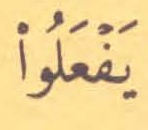 يَفْعَلُواْ